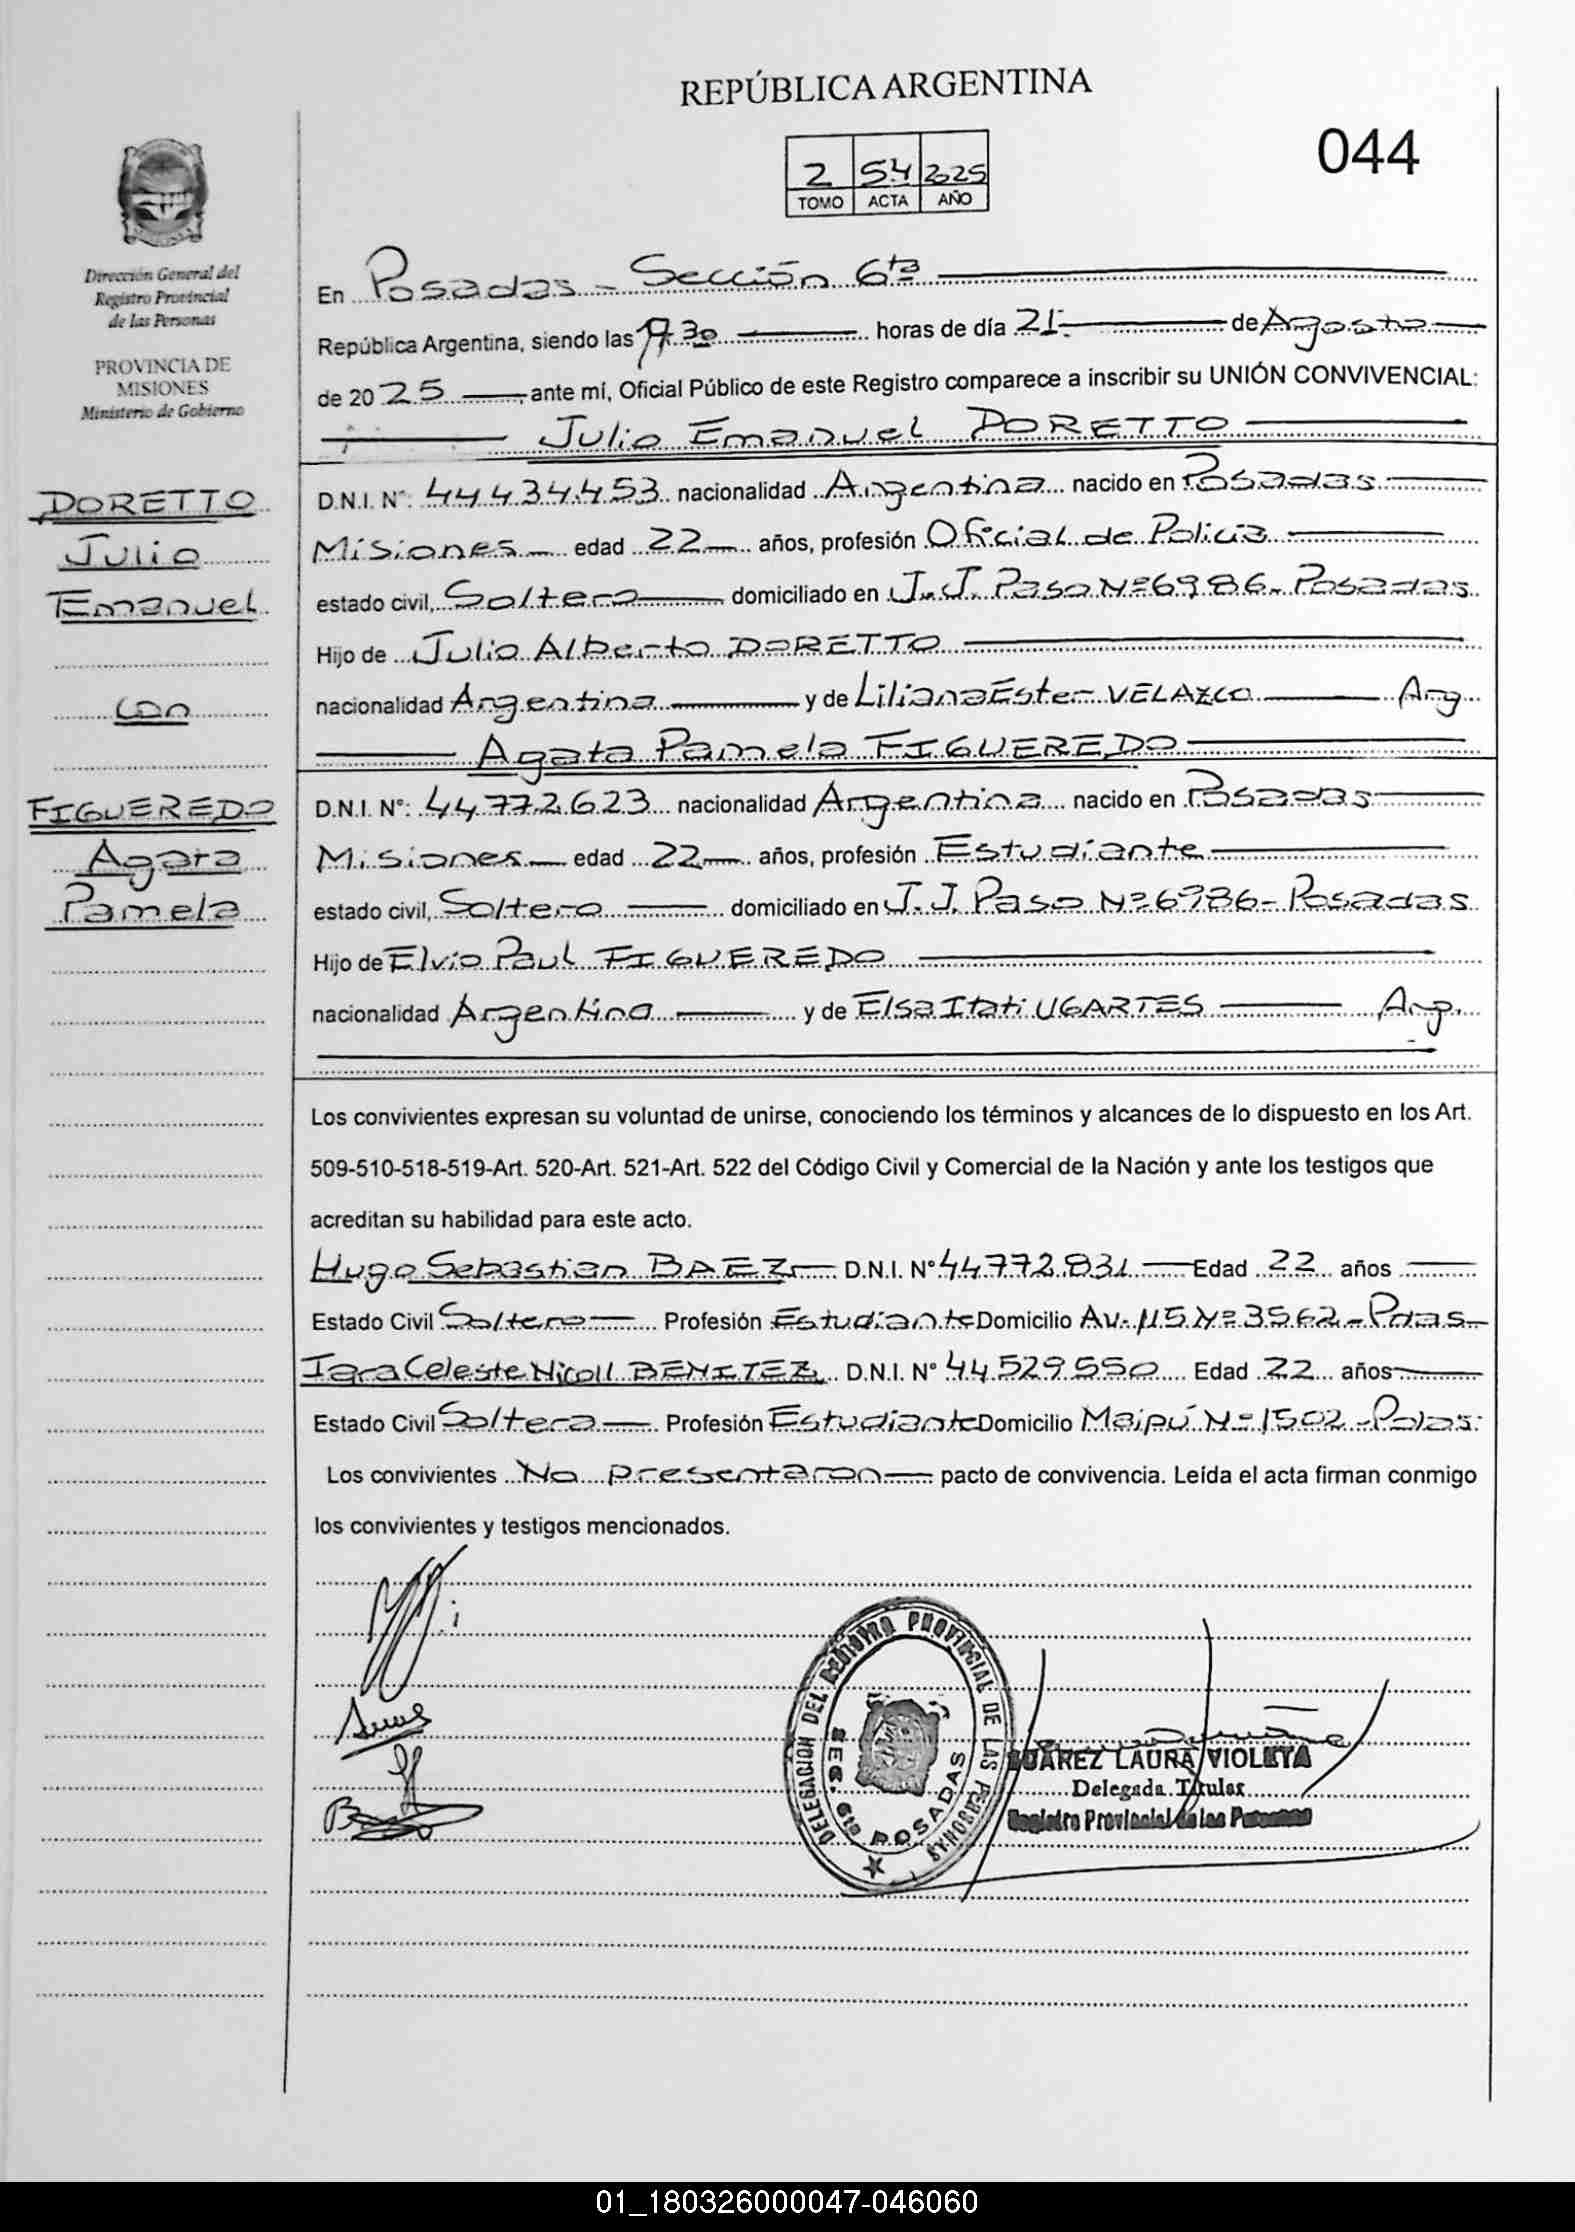 REPÚBLICA ARGENTINA
044
2 54 2025
TOMO ACTA AÑO
Dirección General del
Registro Provincial
de las Personas
PROVINCIA DE
MISIONES
Ministerio de Gobierno
En Posadas - Sección 6ta
República Argentina, siendo las horas de día 21 de Agosto
de 2025, ante mí, Oficial Público de este Registro comparece a inscribir su UNIÓN CONVIVENCIAL:
Julio Emanuel DORETTO
DORETTO
Julio
Emanuel
con
FIGUEREDO
Agata
Pamela
D.N.I. N°. 44.434.453. nacionalidad Argentina nacido en Posadas
Misiones edad 22 años, profesión Oficial de Policia
estado civil, Soltero domiciliado en J.J. Paso Nº 6986 - Posadas
Hijo de Julio Alberto DORETTO
nacionalidad Argentina y de Liliana Ester VELAZCO Arg
Agata Pamela FIGUEREDO
D.N.I. N°: 44.772.623 nacionalidad Argentina nacido en Posadas
Misiones edad 22 años, profesión Estudiante
estado civil, Soltero domiciliado en J.J. Paso Nº 6986 - Posadas
Hijo de Elvio Paul FIGUEREDO
nacionalidad Argentina y de Elsa Itati UGARTES Arg.
Los convivientes expresan su voluntad de unirse, conociendo los términos y alcances de lo dispuesto en los Art.
509-510-518-519-Art. 520-Art. 521-Art. 522 del Código Civil y Comercial de la Nación y ante los testigos que
acreditan su habilidad para este acto.
Hugo Sebastian BAEZ D.N.I. N° 44.772.831 Edad 22 años
Estado Civil Soltero Profesión Estudiante Domicilio Av. 115 Nº 3562 - Pdas
Iara Celeste Nicoll BENITEZ D.N.I. N° 44.529.550 Edad 22 años
Estado Civil Soltera Profesión Estudiante Domicilio Maipú Nº 1502 - Pdas.
Los convivientes No presentaron pacto de convivencia. Leída el acta firman conmigo
los convivientes y testigos mencionados.
DELEGACION DEL REGISTRO PROVINCIAL DE LAS PERSONAS
SEC. 6ta POSADAS
SUÁREZ LAURA VIOLETA
Delegada Titular
Registro Provincial de las Personas
01_180326000047-046060